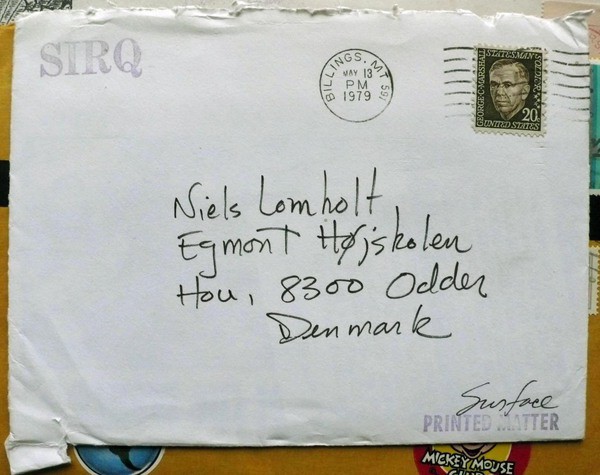 SIRQ
BILLINGS, MT 591
MAY 13
PM
1979
GEORGE C. MARSHALL
STATESMAN
SOLDIER
20¢
UNITED STATES
Niels Lomholt
Egmont Højskolen
Hou, 8300 Odder
Denmark
Surface
PRINTED MATTER
MICKEY MOUSE